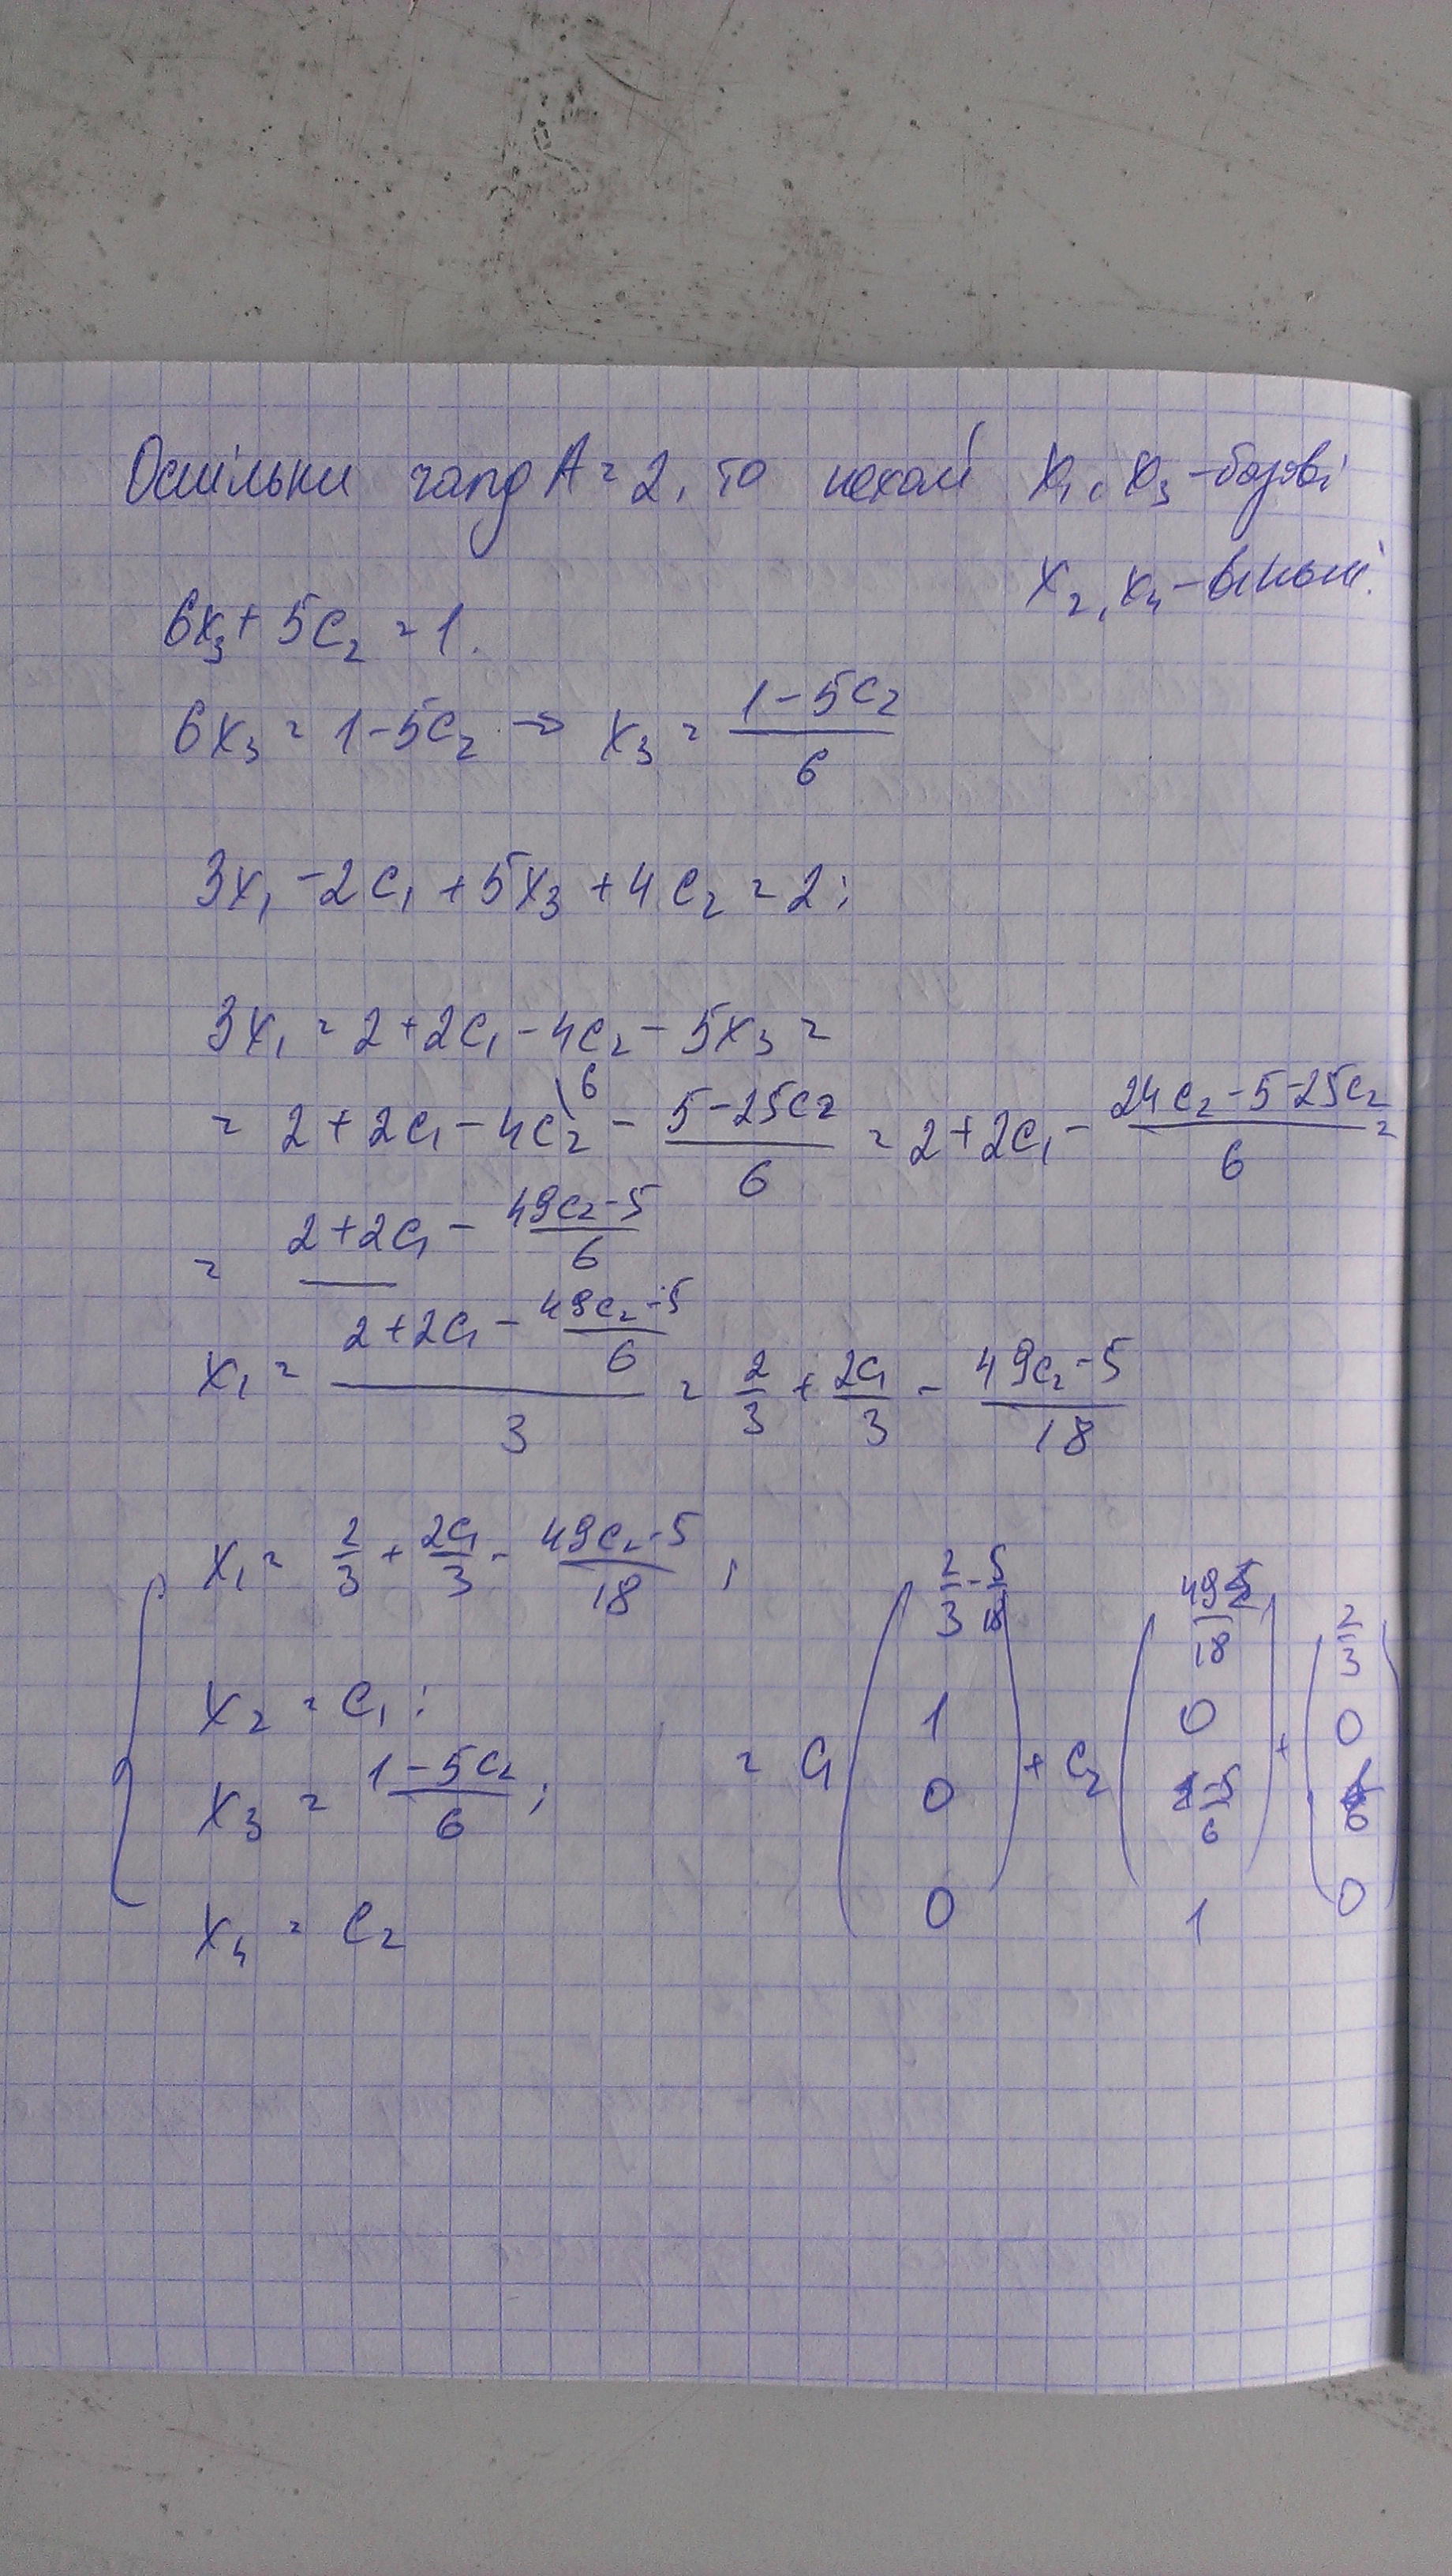 Оскільки rang A = 2, то нехай x₁, x₃ - базові
x₂, x₄ - вільні.
6x₃ + 5c₂ = 1.
6x₃ = 1 - 5c₂ → x₃ = (1 - 5c₂)/6
3x₁ - 2c₁ + 5x₃ + 4c₂ = 2;
3x₁ = 2 + 2c₁ - 4c₂ - 5x₃ =
= 2 + 2c₁ - 4c₂\6 - (5 - 25c₂)/6 = 2 + 2c₁ - (24c₂ - 5 - 25c₂)/6 =
= 2 + 2c₁ - (49c₂ - 5)/6
x₁ = (2 + 2c₁ - (49c₂ - 5)/6)/3 = 2/3 + 2c₁/3 - (49c₂ - 5)/18
x₁ = 2/3 + 2c₁/3 - (49c₂ - 5)/18 ;
x₂ = c₁ ;
x₃ = (1 - 5c₂)/6 ;
x₄ = c₂
= c₁ (2/3 - 5/18, 1, 0, 0) + c₂ (49/18, 0, -5/6, 1) + (2/3, 0, 6, 0)